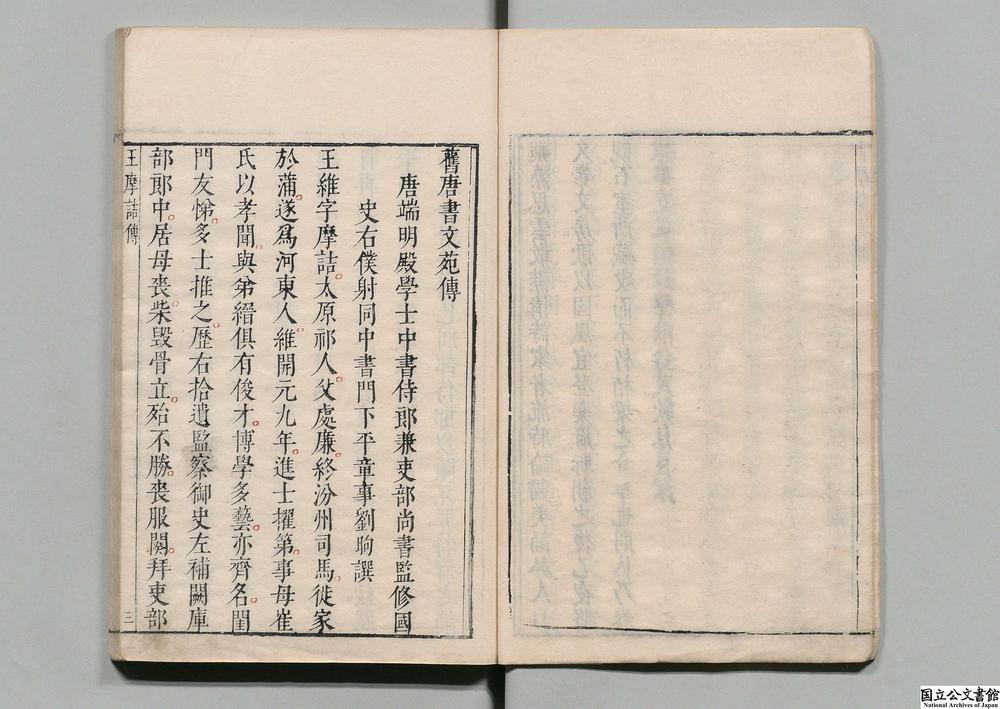 舊唐書文苑傳
唐端明殿學士中書侍郎兼吏部尚書監修國
史右僕射同中書門下平章事劉昫譔
王維字摩詰太原祁人父處廉終汾州司馬徙家
於蒲遂爲河東人維開元九年進士擢第事母崔
氏以孝聞與弟縉俱有俊才博學多藝亦齊名閨
門友悌多士推之歷右拾遺監察御史左補闕庫
部郎中居母喪柴毀骨立殆不勝喪服闋拜吏部
王摩詰傳
三
国立公文書館
National Archives of Japan